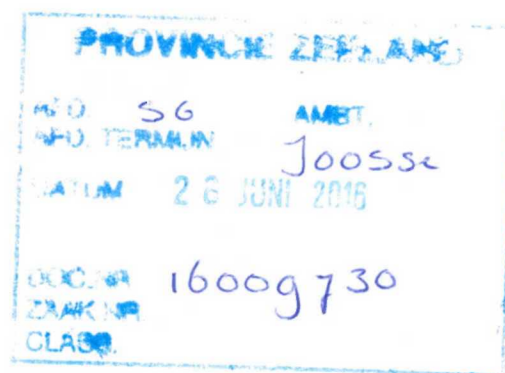 PROVINCIE ZEELAND
AFD. SG AMBT.
AFD. TERMIJN Joosse
DATUM 28 JUNI 2016
DOC.NR 16009730
ZAAK NR
CLASS.